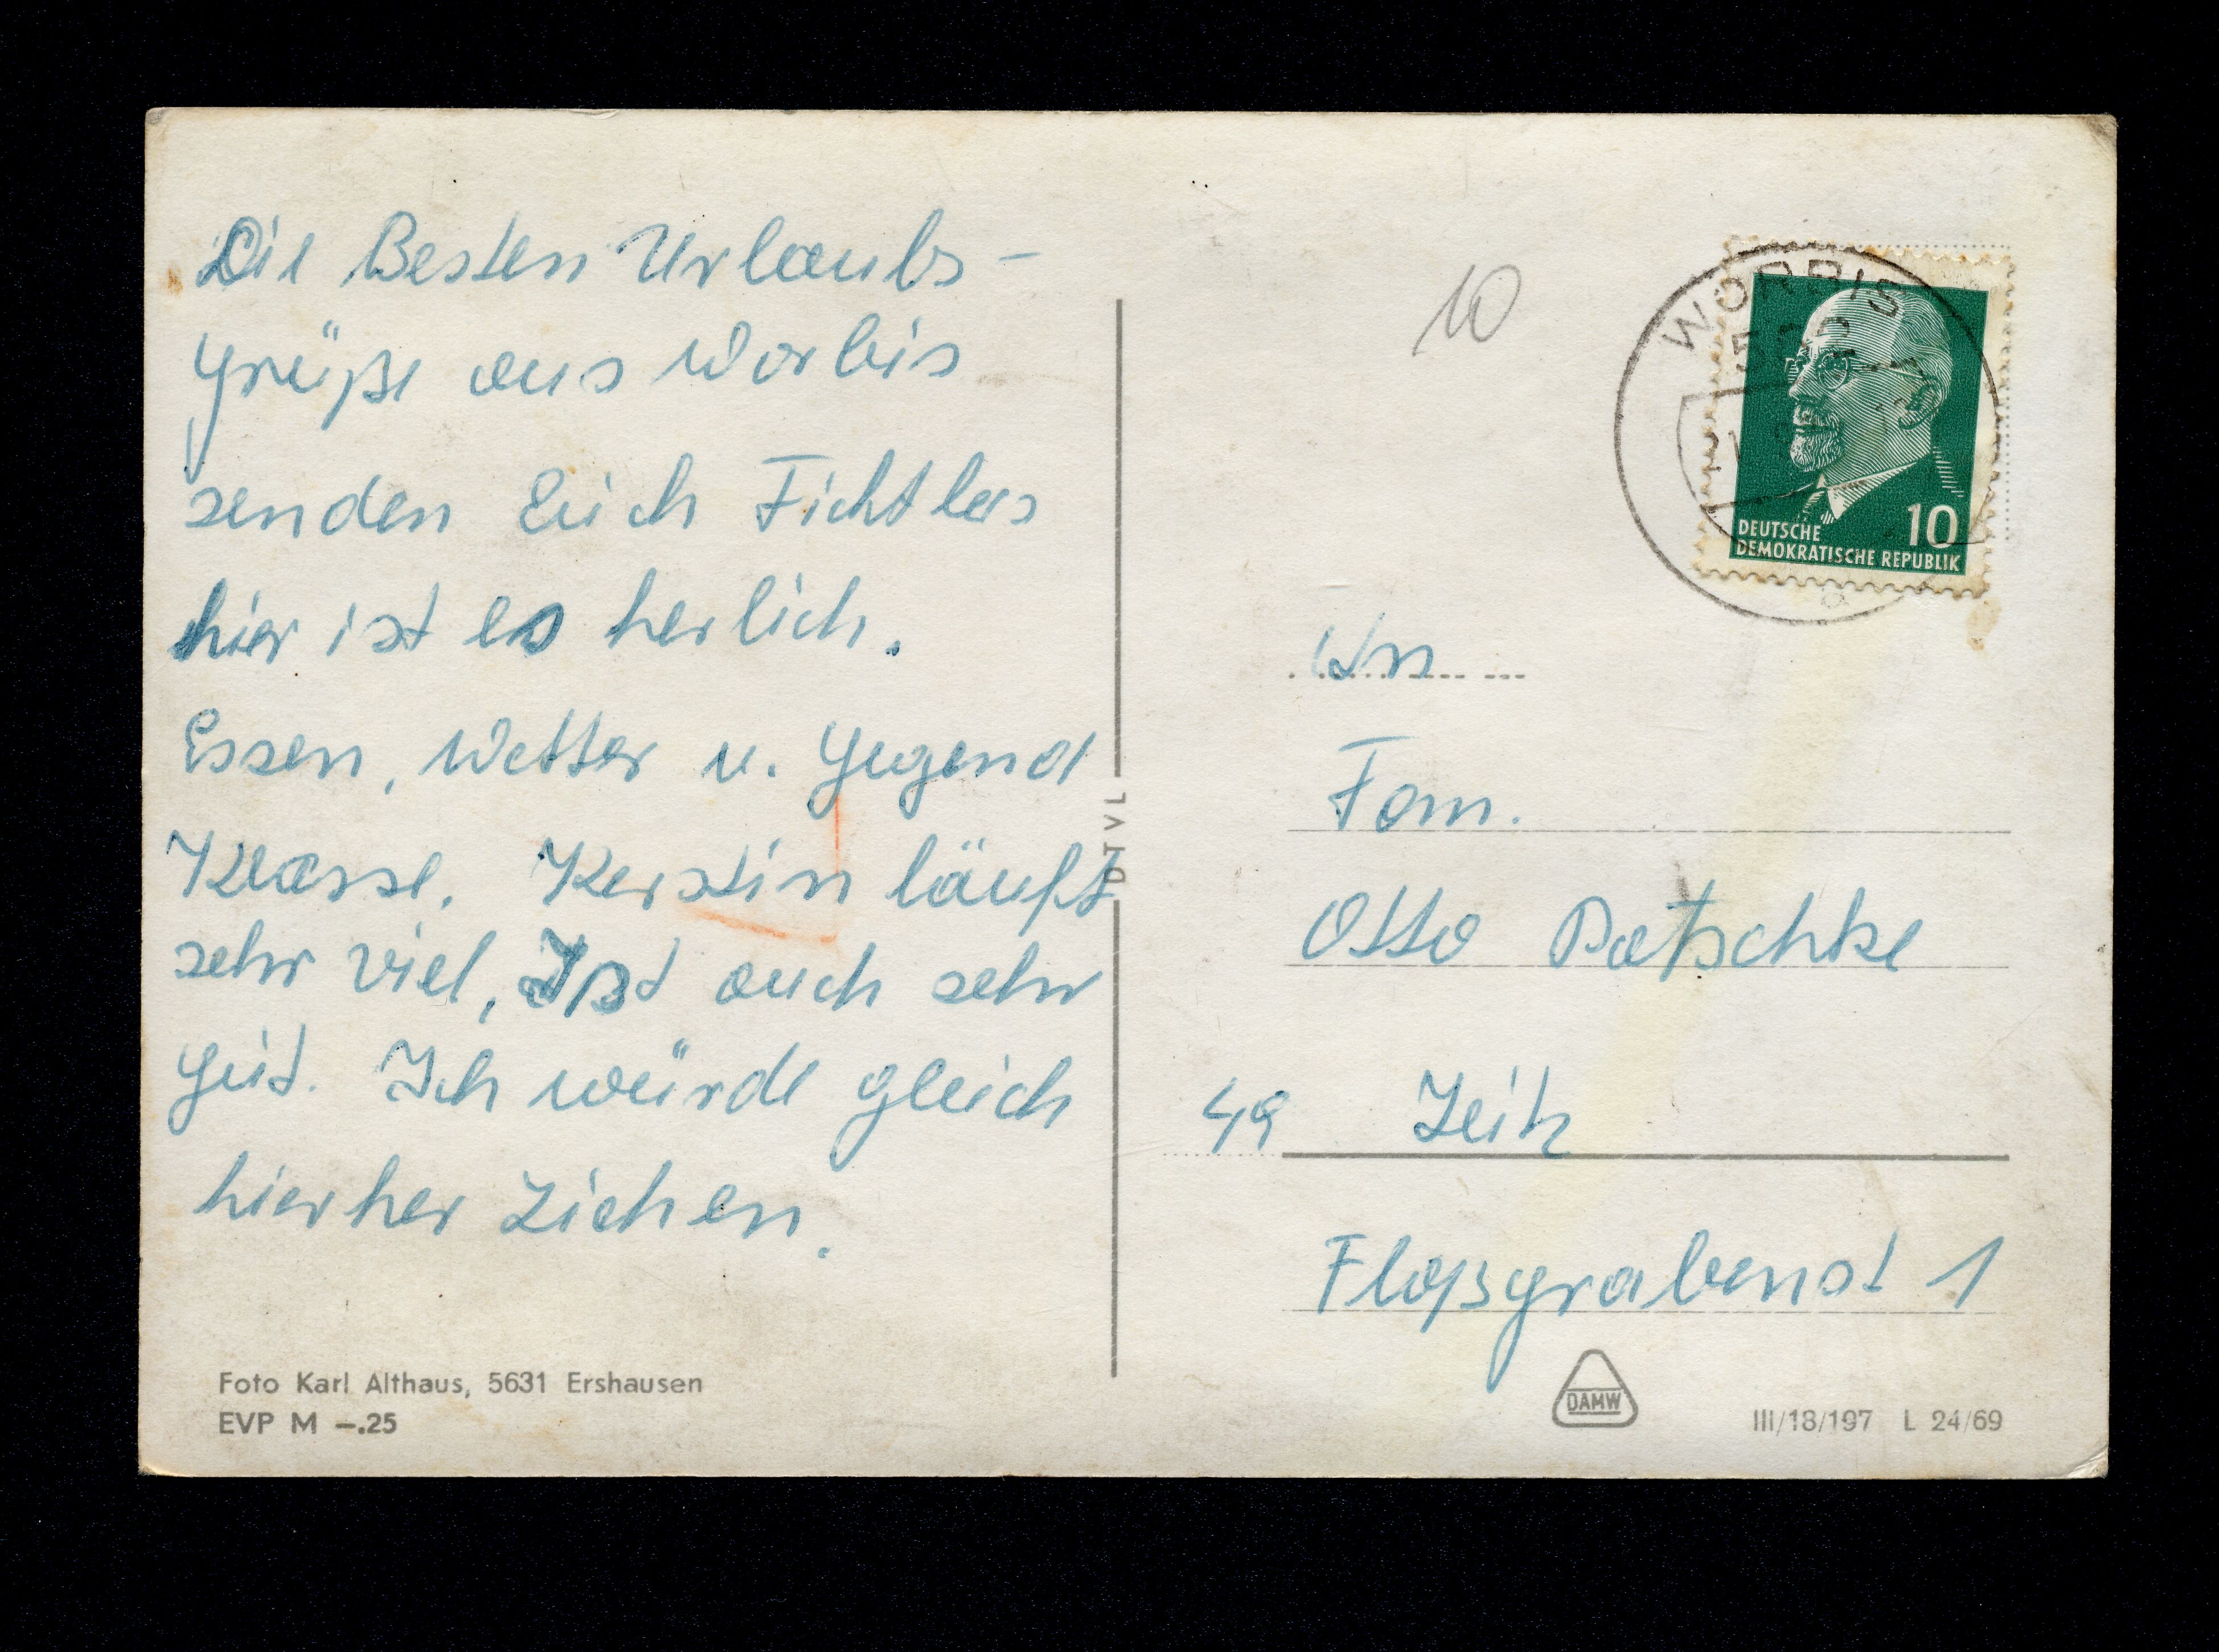 Die Besten Urlaubs-
grüße aus Worbis
senden Euch Fichtlers
hier ist es herlich.
Essen, Wetter u. Gegend
Klasse. Kerstin läuft
sehr viel, Ißt auch sehr
gut. Ich würde gleich
hierher ziehen.
Foto Karl Althaus, 5631 Ershausen
EVP M –.25
DTVL
10
WORBIS
DEUTSCHE 10
DEMOKRATISCHE REPUBLIK
An
Fam.
Otto Patschke
49 Zeitz
Floßgrabenst 1
DAMW
III/18/197 L 24/69